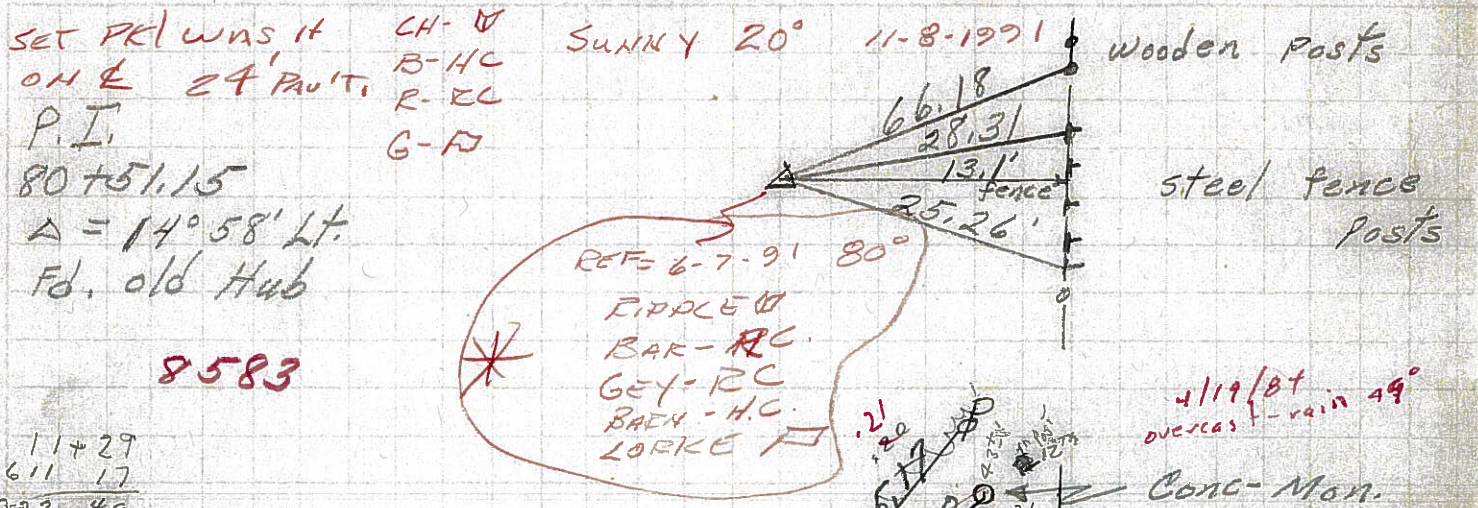 SET PK/ WAS, H
ON ℄ 24' PAV'T.
P.I.
80+51.15
Δ = 14° 58' Lt.
Fd. old Hub
8583
11+29
611 17
CH-
B-HC
R-RC
G-
SUNNY 20° 11-8-1991
66.18
28.31
13.1'
fence
25.26'
wooden posts
steel fence
posts
REF= 6-7-91 80°
RIPPLE
BAR- RC.
GEY- RC
BAEH - H.C.
LORKE
.21
.20
4/19/84
overcast - rain 49°
Conc-Mon.